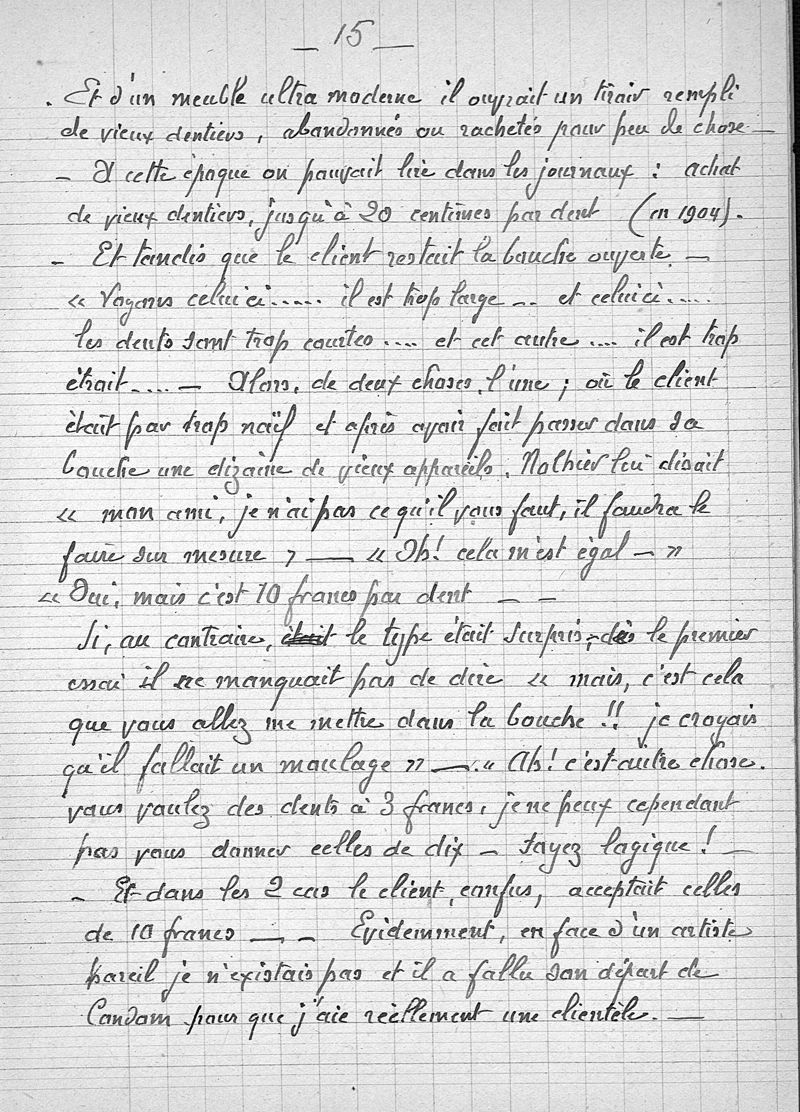 — 15 —
. Et d'un meuble ultra moderne il ouvrait un tiroir rempli
de vieux dentiers, abandonnés ou rachetés pour peu de chose —
— A cette époque on pouvait lire dans les journaux : achat
de vieux dentiers, jusqu'à 20 centimes par dent (en 1904).
— Et tandis que le client restait la bouche ouverte —
« Voyons celui ci..... il est trop large -- et celui ci.....
les dents sont trop courtes .... et cet autre .... il est trop
étroit ..... — Alors, de deux choses l'une ; où le client
était par trop naïf et après avoir fait passer dans sa
bouche une dizaine de vieux appareils, Mathier lui disait
« mon ami, je n'ai pas ce qu'il vous faut, il faudra le
faire sur mesure » — « Oh! cela m'est égal — »
« Oui, mais c'est 10 francs par dent — —
Si, au contraire, était le type était surpris, dès le premier
essai il ne manquait pas de dire « mais, c'est cela
que vous allez me mettre dans la bouche !! je croyais
qu'il fallait un moulage » —. « Ah! c'est autre chose.
vous voulez des dents à 3 francs, je ne peux cependant
pas vous donner celles de dix — soyez logique ! —
— Et dans les 2 cas le client, confus, acceptait celles
de 10 francs — — Evidemment, en face d'un artiste
pareil je n'existais pas et il a fallu son départ de
Condom pour que j'aie réellement une clientèle. —